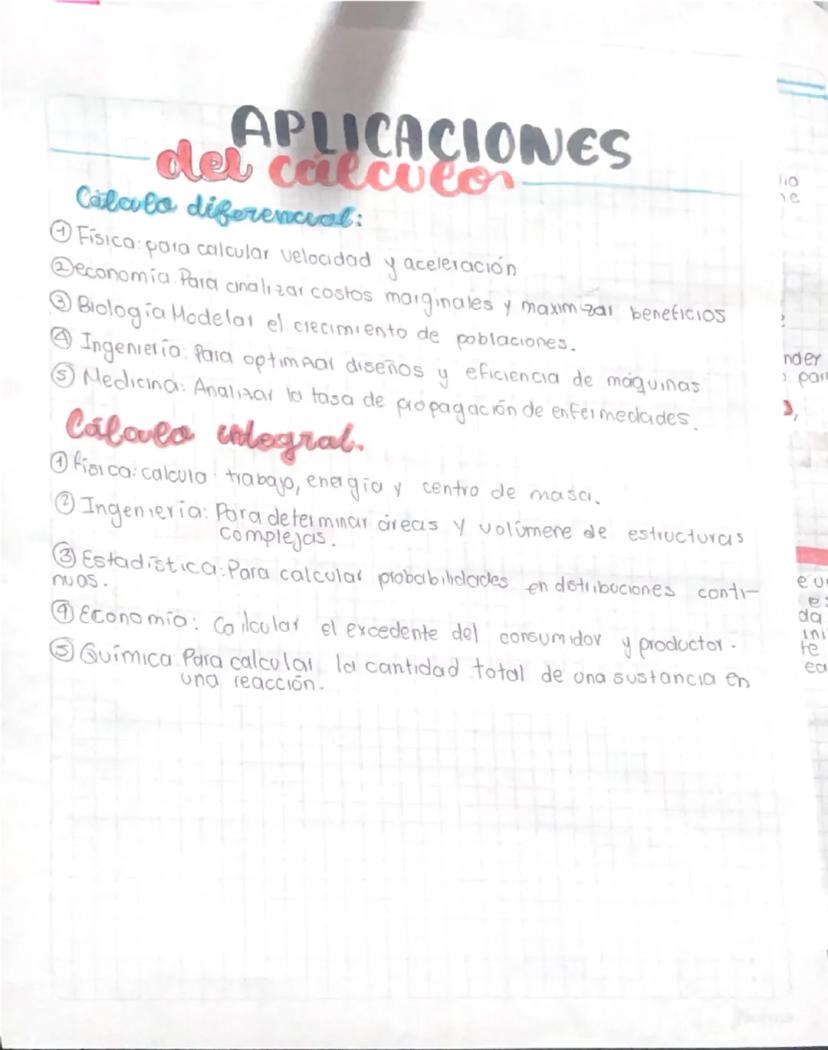 APLICACIONES
del cálculo
Cálculo diferencial:
① Física: para calcular velocidad y aceleración
② economía Para analizar costos marginales y maximizar beneficios
③ Biología Modelar el crecimiento de poblaciones.
④ Ingeniería: Para optimizar diseños y eficiencia de máquinas
⑤ Medicina: Analizar la tasa de propagación de enfermedades.
Cálculo integral.
① física: calcula trabajo, energía y centro de masa.
② Ingeniería: Para determinar áreas y volúmene de estructuras
complejas.
③ Estadística: Para calcular probabilidades en distribuciones conti-
nuas.
④ Economía: Calcular el excedente del consumidor y productor.
⑤ Química Para calcular la cantidad total de una sustancia en
una reacción.
nder